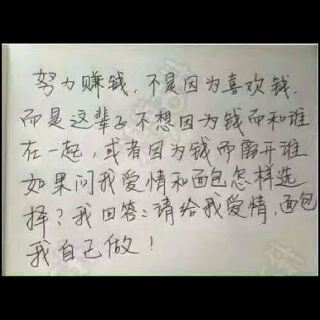 努力赚钱，不是因为喜欢钱，
而是这辈子不想因为钱而和谁
在一起，或者因为钱而离开谁
如果问我爱情和面包怎样选
择？我回答：请给我爱情，面包
我自己做！